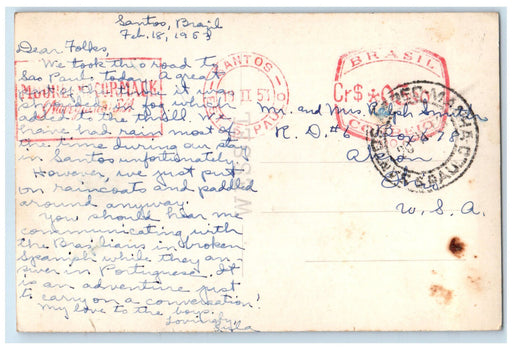 Santos, Brazil
Feb. 18, 1953
Dear Folks,
We took this road to
Sao Paulo today. A great
part of the time it was
in for which
added to the thrill. We
have had rain most of
the time during our stay
in Santos unfortunately.
However, we just put
on raincoats and paddled
around anyway.
You should hear me
communicating with
the Brazilians in broken
Spanish while they an-
swer in Portuguese. It
is an adventure just
to carry on a conversation!
My love to the boys.
Lovingly,
MOORE McCORMACK
SANTOS
18 II 53
S. PAULO
BRASIL
Cr$
Mr. and Mrs. Ralph Smith
R.D.#6 Box
Akron
U.S.A.